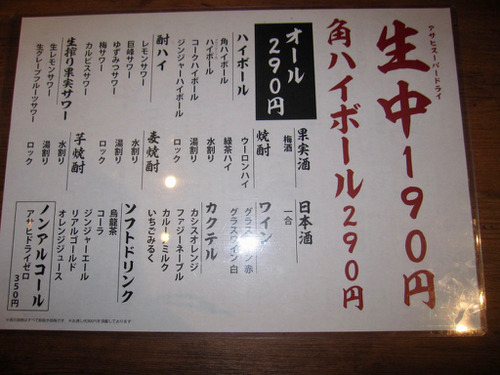 アサヒスーパードライ
生中190円
角ハイボール290円
オール
290円
ハイボール
角ハイボール
ハイボール
コークハイボール
ジンジャーハイボール
酎ハイ
レモンサワー
巨峰サワー
ゆずみつサワー
梅サワー
カルピスサワー
生搾り果実サワー
生レモンサワー
生グレープフルーツサワー
果実酒
梅酒
焼酎
ウーロンハイ
緑茶ハイ
水割り
湯割り
ロック
麦焼酎
水割り
湯割り
ロック
芋焼酎
水割り
湯割り
ロック
日本酒
一合
ワイン
グラスワイン 赤
グラスワイン 白
カクテル
カシスオレンジ
ファジーネーブル
カルーアミルク
いちごみるく
ソフトドリンク
烏龍茶
コーラ
ジンジャーエール
リアルゴールド
オレンジジュース
ノンアルコール
アサヒドライゼロ
350円